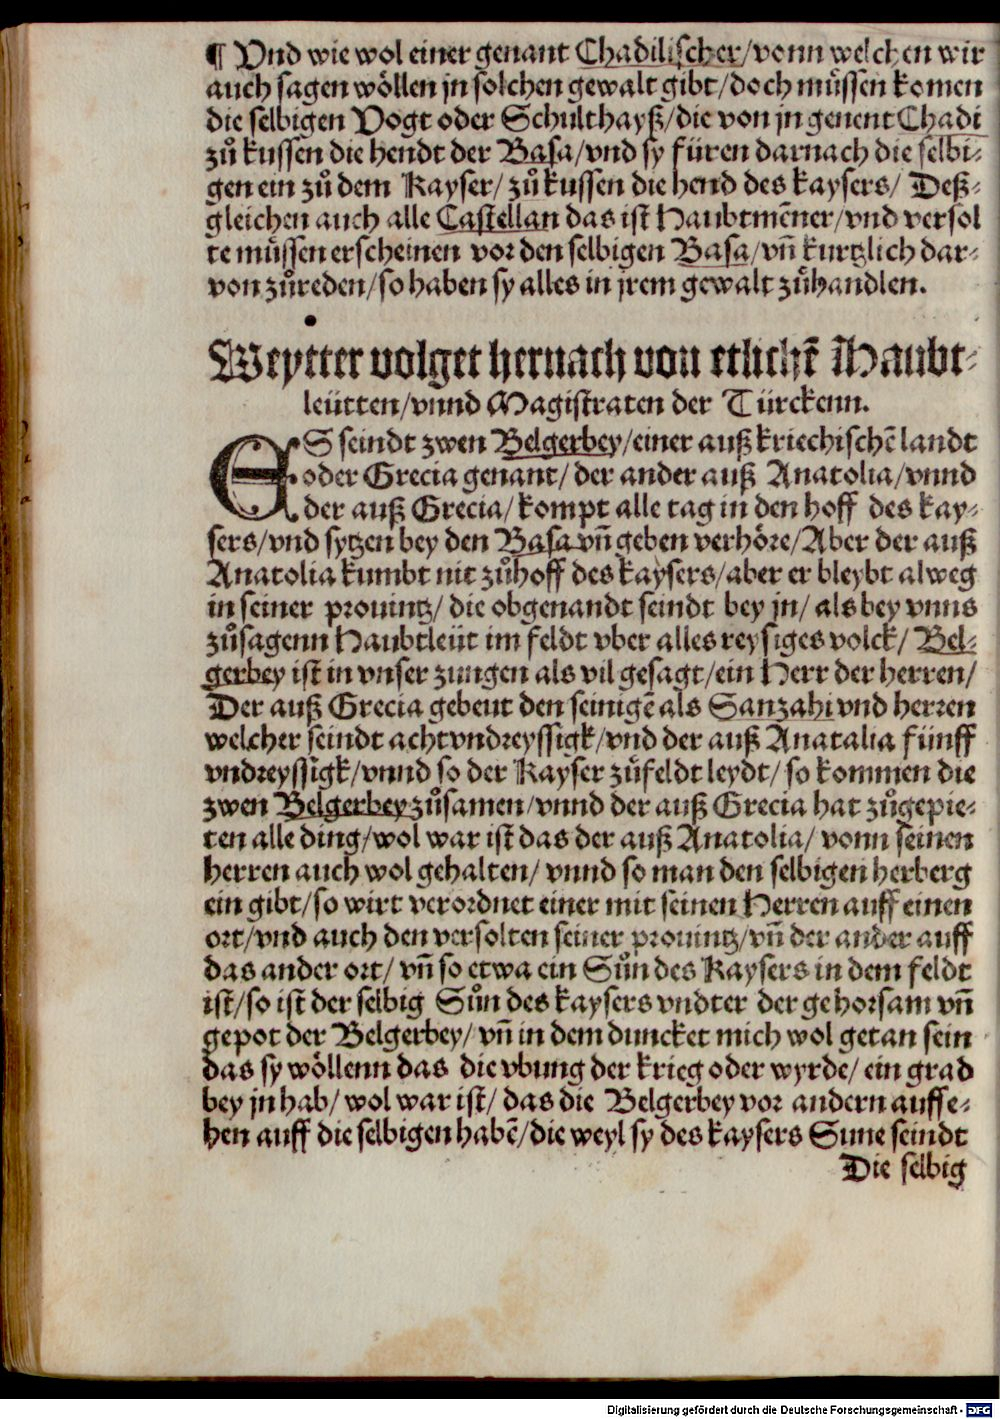 ¶ Vnd wie wol einer genant Chadilischer/vonn welchen wir
auch sagen wöllen jn solchen gewalt gibt/doch müssen komen
die selbigen Vogt oder Schulthayß/die von jn genent Chadi
zů kussen die hendt der Basa/vnd sy füren darnach die selbi-
gen ein zů dem Kayser/ zů kussen die hend des kaysers/ Deß-
gleichen auch alle Castellan das ist Haubtmẽner/vnd versol
te müssen erscheinen vor den selbigen Basa/vñ kurtzlich dar-
von zůreden/so haben sy alles in jrem gewalt zůhandlen.
Weytter volget hernach von etlichẽ Haubt-
leütten/vnnd Magistraten der Türckenn.
ES seindt zwen Belgerbey/einer auß kriechischẽ landt
oder Grecia genant/ der ander auß Anatolia/vnnd
der auß Grecia/ kompt alle tag in den hoff des kay-
sers/vnd sytzen bey den Basa vñ geben verhöre/Aber der auß
Anatolia kumbt nit zůhoff des kaysers/aber er bleybt alweg
in seiner prouintz/ die obgenandt seindt bey jn/ als bey vnns
zůsagenn Haubtleüt im feldt vber alles reysiges volck/ Bel-
gerbey ist in vnser zungen als vil gesagt/ein Herr der herren/
Der auß Grecia gebeut den seinigẽ als Sanzahi vnd herren
welcher seindt achtvndreyssigk/vnd der auß Anatalia fünff
vndreyssigk/vnnd so der Kayser zůfeldt leydt/ so kommen die
zwen Belgerbey zůsamen/vnnd der auß Grecia hat zůgepie-
ten alle ding/wol war ist das der auß Anatolia/ vonn seinen
herren auch wol gehalten/ vnnd so man den selbigen herberg
ein gibt/so wirt verordnet einer mit seinen Herren auff einen
ort/vnd auch den versolten seiner prouintz/vñ der ander auff
das ander ort/ vñ so etwa ein Sůn des Kaysers in dem feldt
ist/so ist der selbig Sůn des kaysers vndter der gehorsam vñ
gepot der Belgerbey/ vñ in dem duncket mich wol getan sein
das sy wöllenn das die vbung der krieg oder wyrde/ ein grad
bey jn hab/ wol war ist/ das die Belgerbey vor andern auffse-
hen auff die selbigen habẽ/die weyl sy des kaysers Sune seindt
Die selbig
Digitalisierung gefördert durch die Deutsche Forschungsgemeinschaft - DFG